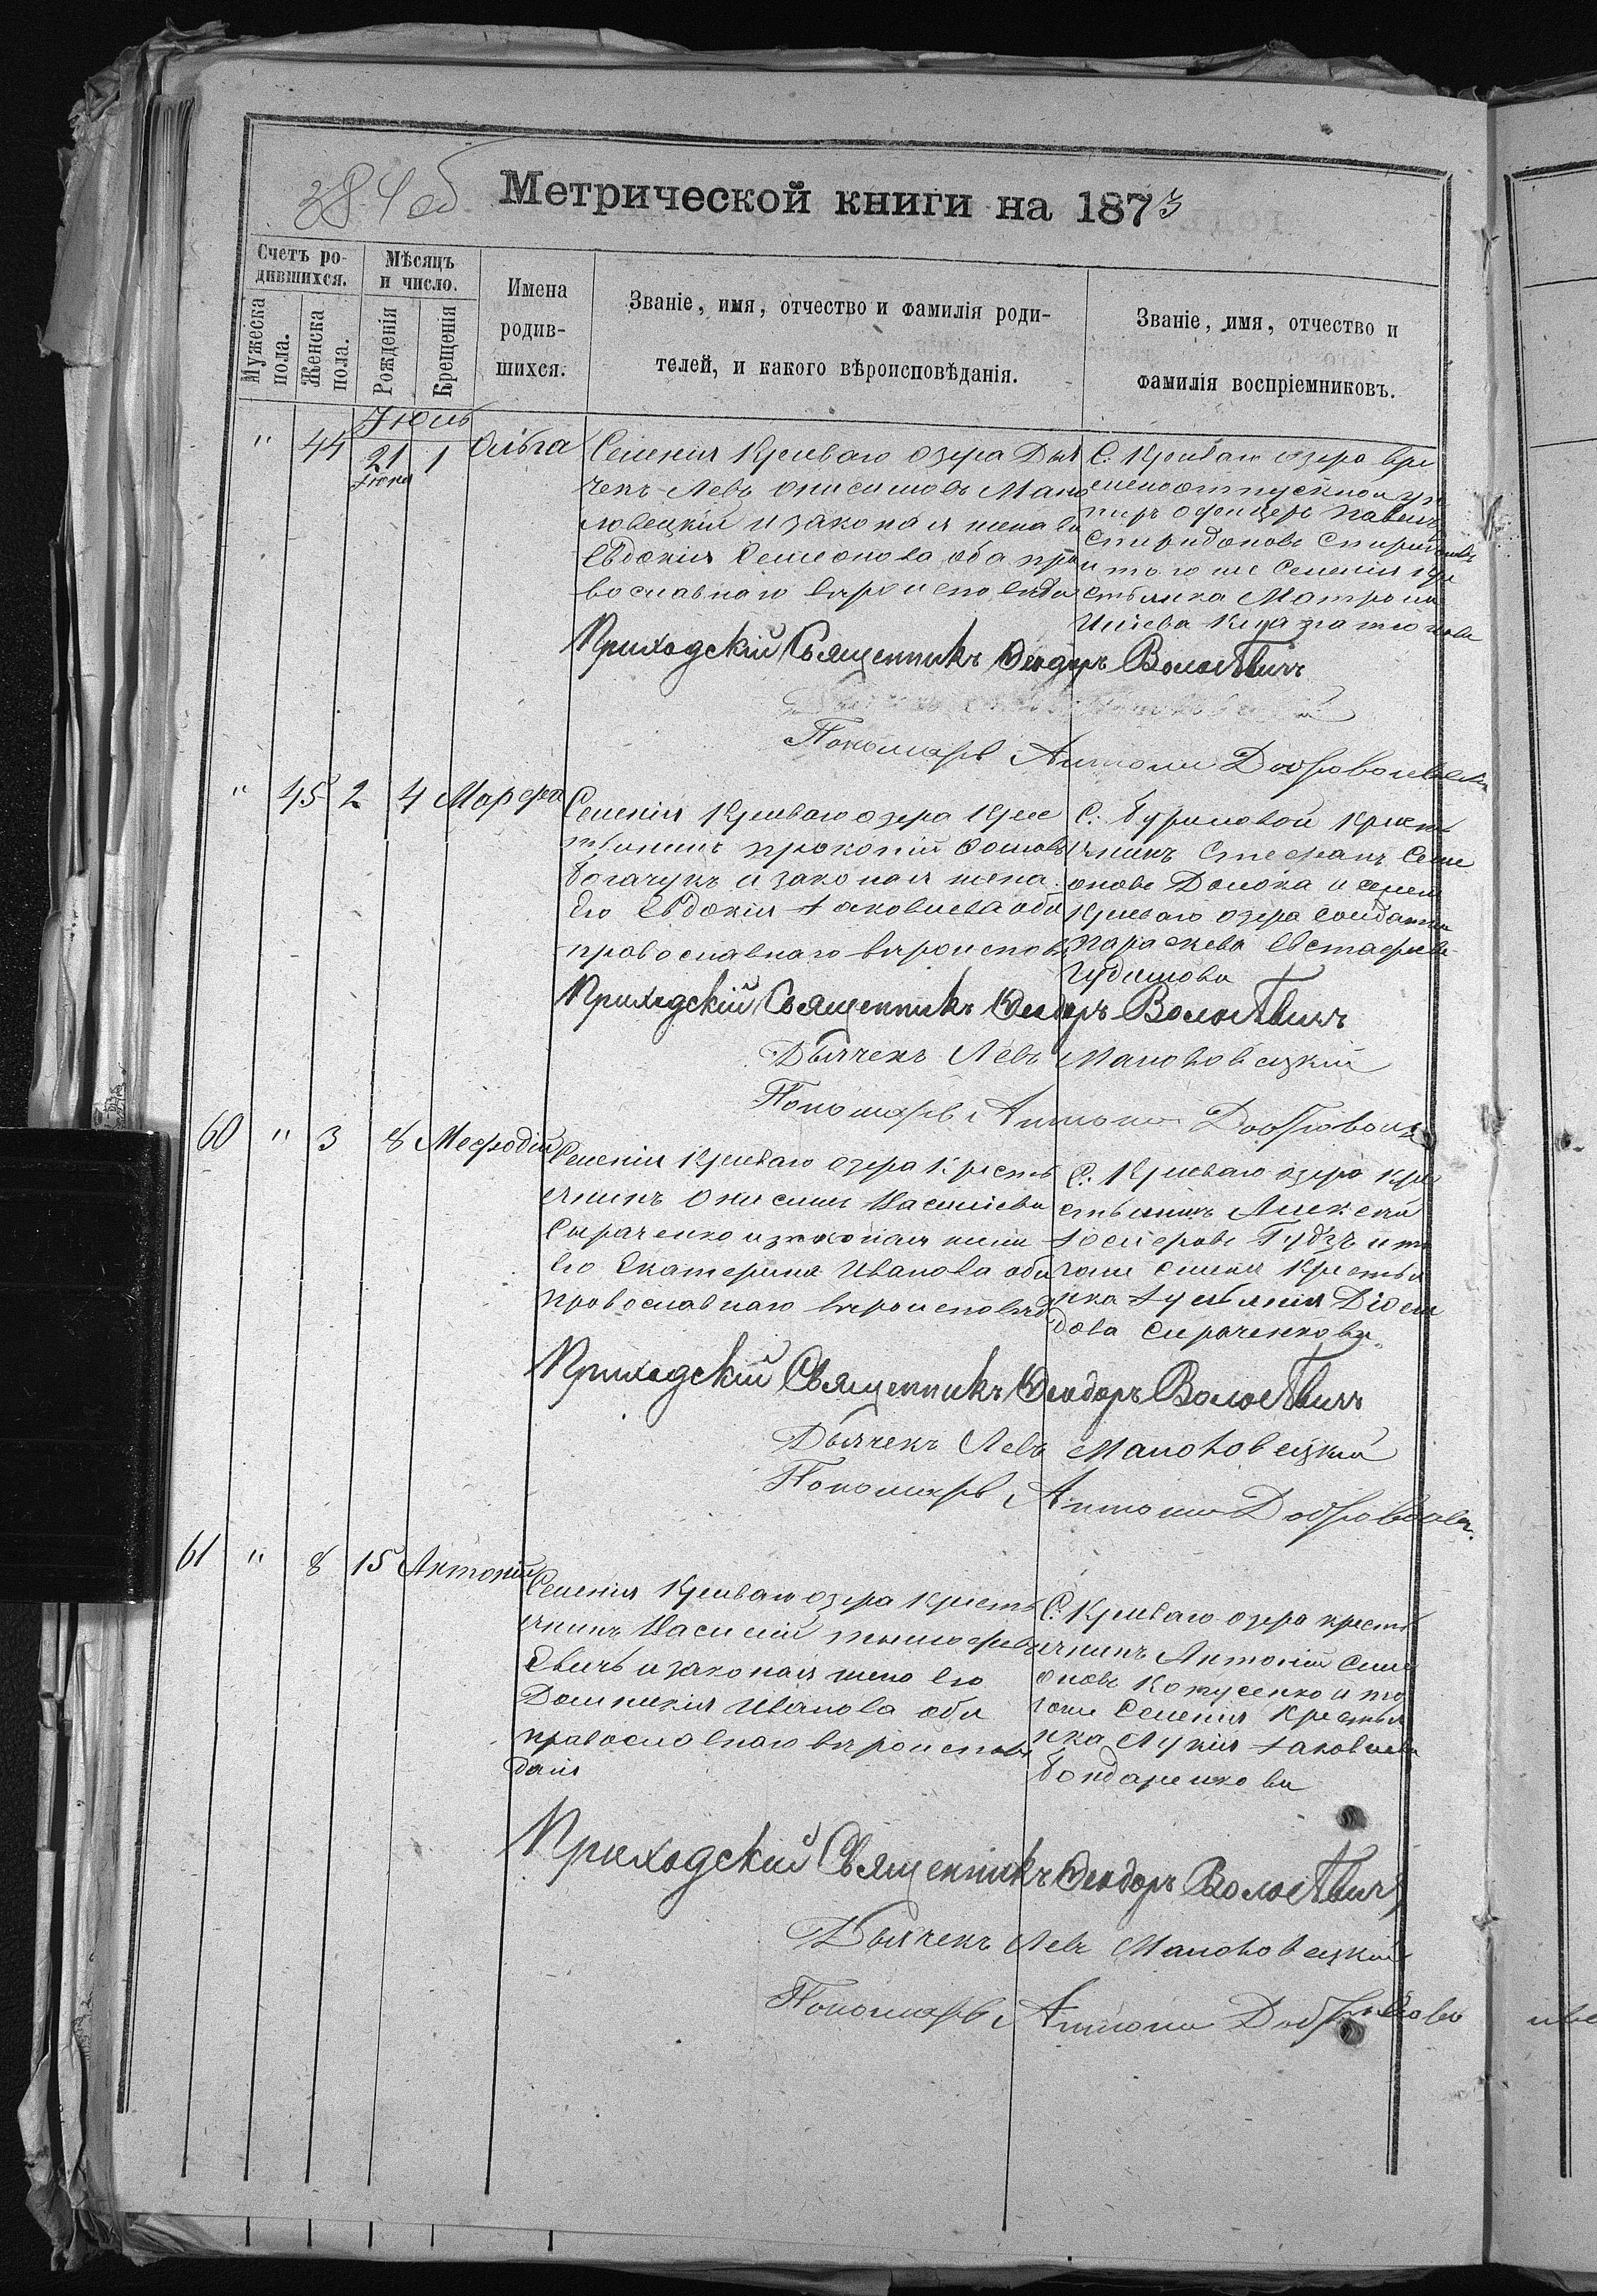 384 об
Метрической книги на 1873
Счетъ ро-
дившихся.
Мѣсяцъ
и число.
Мужеска
пола.
Женска
пола.
Рожденія
Крещенія
Имена
родив-
шихся.
Званіе, имя, отчество и фамилія роди-
телей, и какого вѣроисповѣданія.
Званіе, имя, отчество и
фамилія воспріемниковъ.
Іюль
" 44 21 Іюня 1 Ольга
Селенія Криваго озера Дья
чекъ Левъ Онисимовъ Мано
ловецкій и законая жена
Евдокія Семионова оба пра
вославнаго вѣроисповѣда
С. Криваго озера вре
менноотпускной ун
тиръ офицеръ Павелъ
Спиридоновъ
и того же Селенія кре
стьянка Матрона
Приходскій Священникъ Феодоръ
Пономарь Антоній Добровольск
" 45 2 4 Марфа
Селенія Криваго озера Крес
тьянинъ Прокопій Фомовъ
Богачукъ и законая жена
Его Евдокія Яковлева оба
православнаго вѣроиспов
С. Буриловой Кресть
янинъ Стефанъ Семи
оновъ Долока и селен
Криваго озера солдатка
Параскева Евстафіева
Чудинова
Приходскій Священникъ Феодоръ
Дьячекъ Левъ Маноловецкій
Пономарь Антоній Доброволь
60 " 3 8 Мефодій
Селенія Криваго озера Кресть
янинъ Онисимъ Василіевъ
Сыраченко и законая жена
Его Екатерина Иванова оба
православнаго вѣроисповѣд
С. Криваго озера кре
стьянинъ Алексей
Іосифовъ Гудзъ и то
гоже селенія Крестья
нка Іуліянія Діоми
дова Сираченкова
Приходскій Священникъ Феодоръ
Дьячекъ Левъ Маноловецкій
Пономарь Антоній Добровол.
61 " 8 15 Антоній
Селенія Криваго озера Кресть
янинъ Василій Тимофѣ
Евичъ и законая жена Его
Домникія Иванова оба
православнаго вѣроисповѣ
данія
С. Криваго озера кресть
янинъ Антоній Сими
оновъ Котусенко и то
гоже Селенія Крестья
нка Лукія Яковлева
Бондаренкова
Приходскій Священникъ Феодоръ
Дьячекъ Левъ Маноловецкій
Пономарь Антоній Доброво